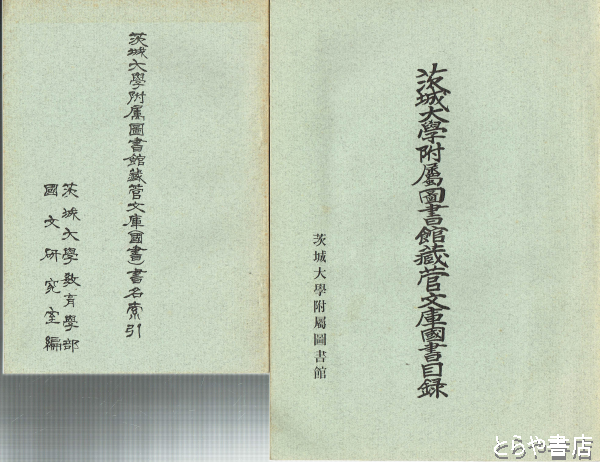 茨城大學附属圖書館藏菅文庫國書目録
茨城大學附屬圖書館
茨城大學附属圖書館藏菅文庫(國書)書名索引
茨城大學教育學部
國文研究室編
とらや書店